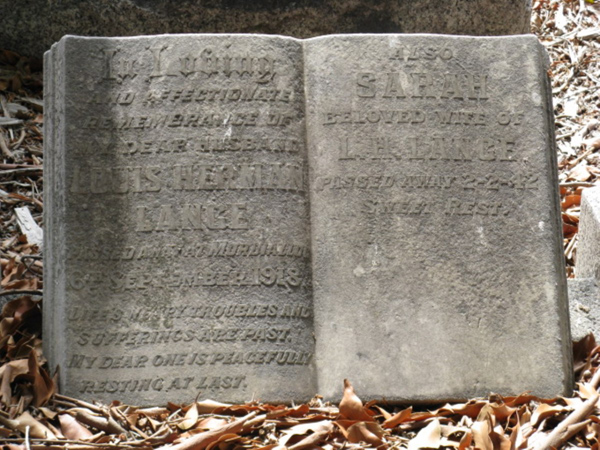 In Loving
AND AFFECTIONATE
REMEMBRANCE OF
MY DEAR HUSBAND
LOUIS HERMAN
LANGE
PASSED AWAY AT MURWILLUMBAH
SEPTEMBER 1918
LIFE'S WEARY TROUBLES AND
SUFFERINGS ARE PAST.
MY DEAR ONE IS PEACEFULLY
RESTING AT LAST.
ALSO
SARAH
BELOVED WIFE OF
L. H. LANGE
PASSED AWAY
SWEET REST.